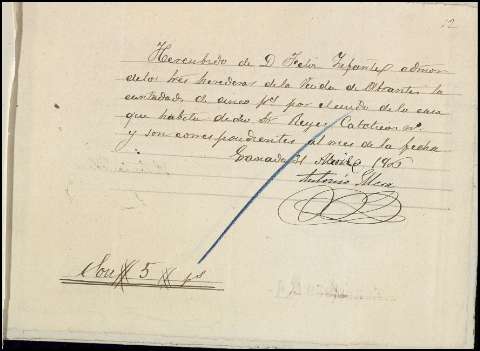 12
He recibido de D Fector Infante admon
de los tres herederos de la Viuda de Abrantes la
cantidad de cinco pts por el cuido de la casa
que habita dicho Sr Reyes Catolicos nº
y son correspondientes al mes de la fecha
Granada Abril
Antonio
Son # 5 # pts